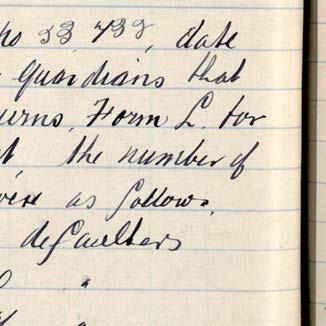 no 33,738, date
Guardians that
urns, Form L. for
the number of
were as follows,
defaulters